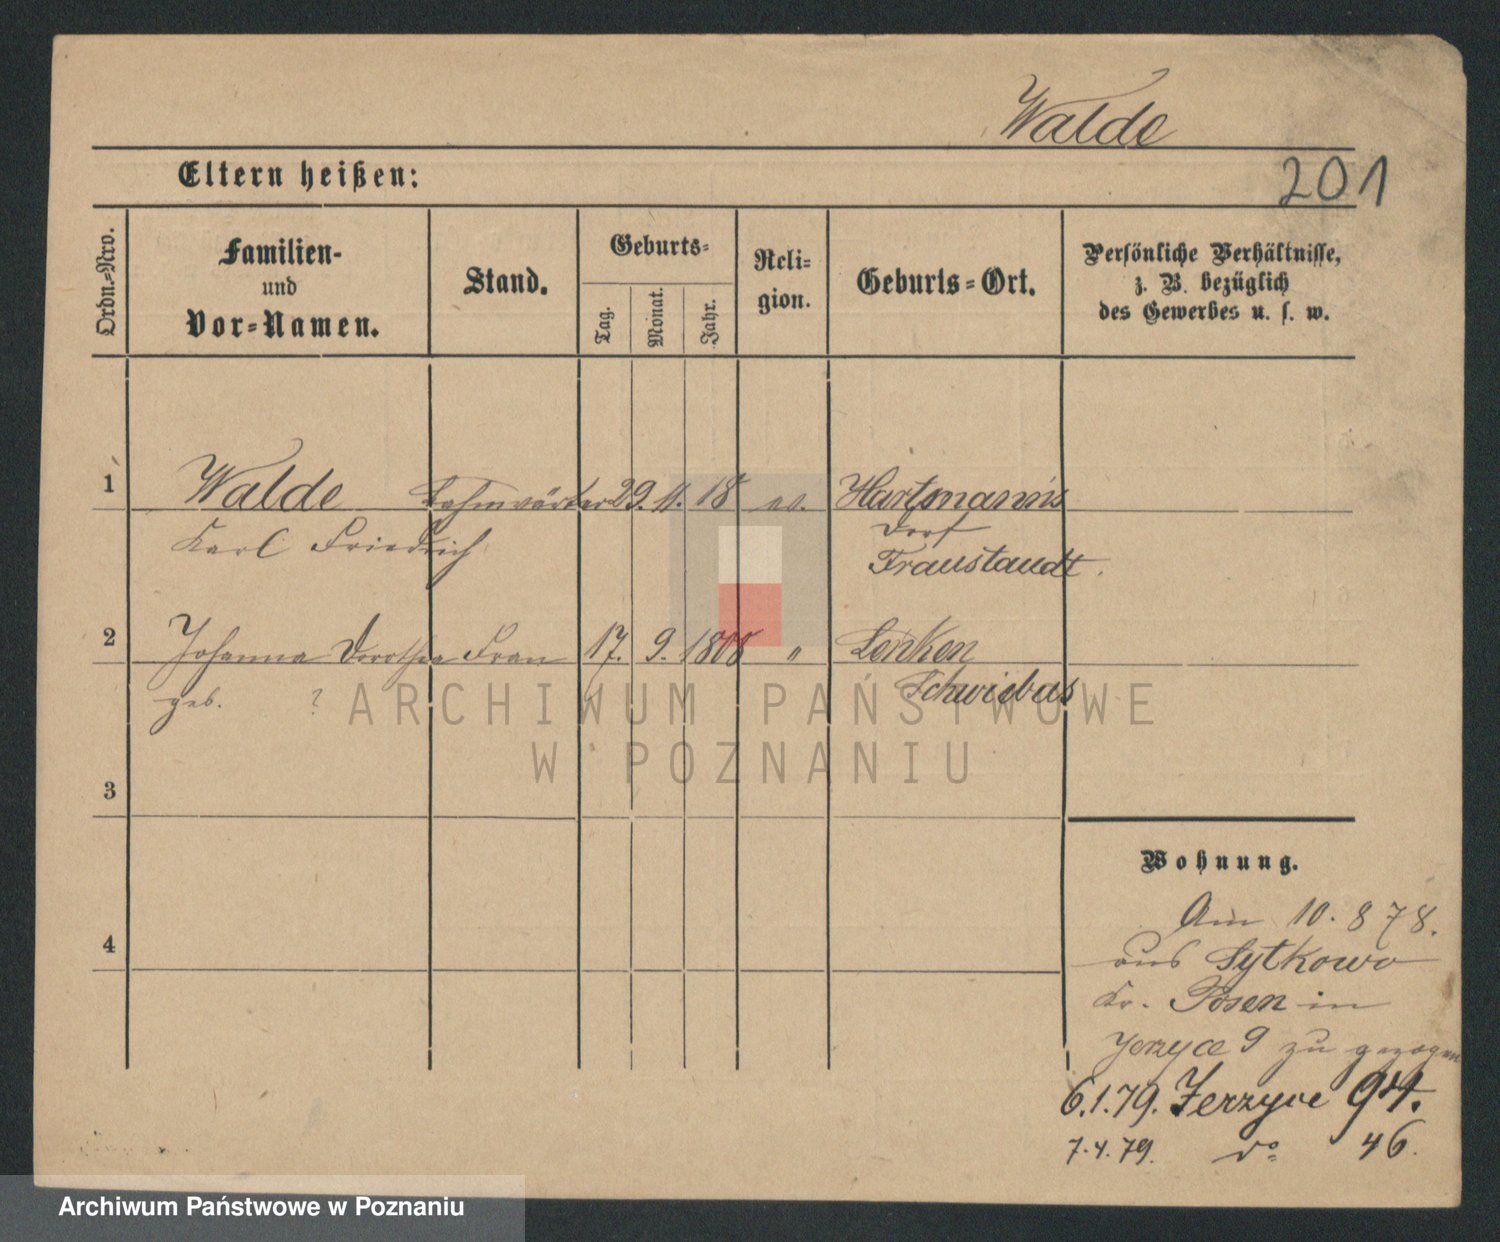 Walde
201
Eltern heißen:
Ordn.-Nro.
Familien-
und
Vor-Namen.
Stand.
Geburts-
Tag.
Monat.
Jahr.
Reli-
gion.
Geburts-Ort.
Persönliche Verhältnisse,
z. B. bezüglich
des Gewerbes u. s. w.
1 Walde 29. 11. 18 ev. Hartmanns
Karl Friedrich dorf
Fraustaudt.
2 Johanna Dorothea Frau 17. 9. 1808 " Lenken
geb. ? Schwiebus
ARCHIWUM PAŃSTWOWE
W POZNANIU
3
4
Wohnung.
Am 10. 8 78.
aus Sytkowo
Kr. Posen in
Jerzyce 9 zu gezogen
6.1.79. Jerzyce 94.
7.4.79. do 46.
Archiwum Państwowe w Poznaniu